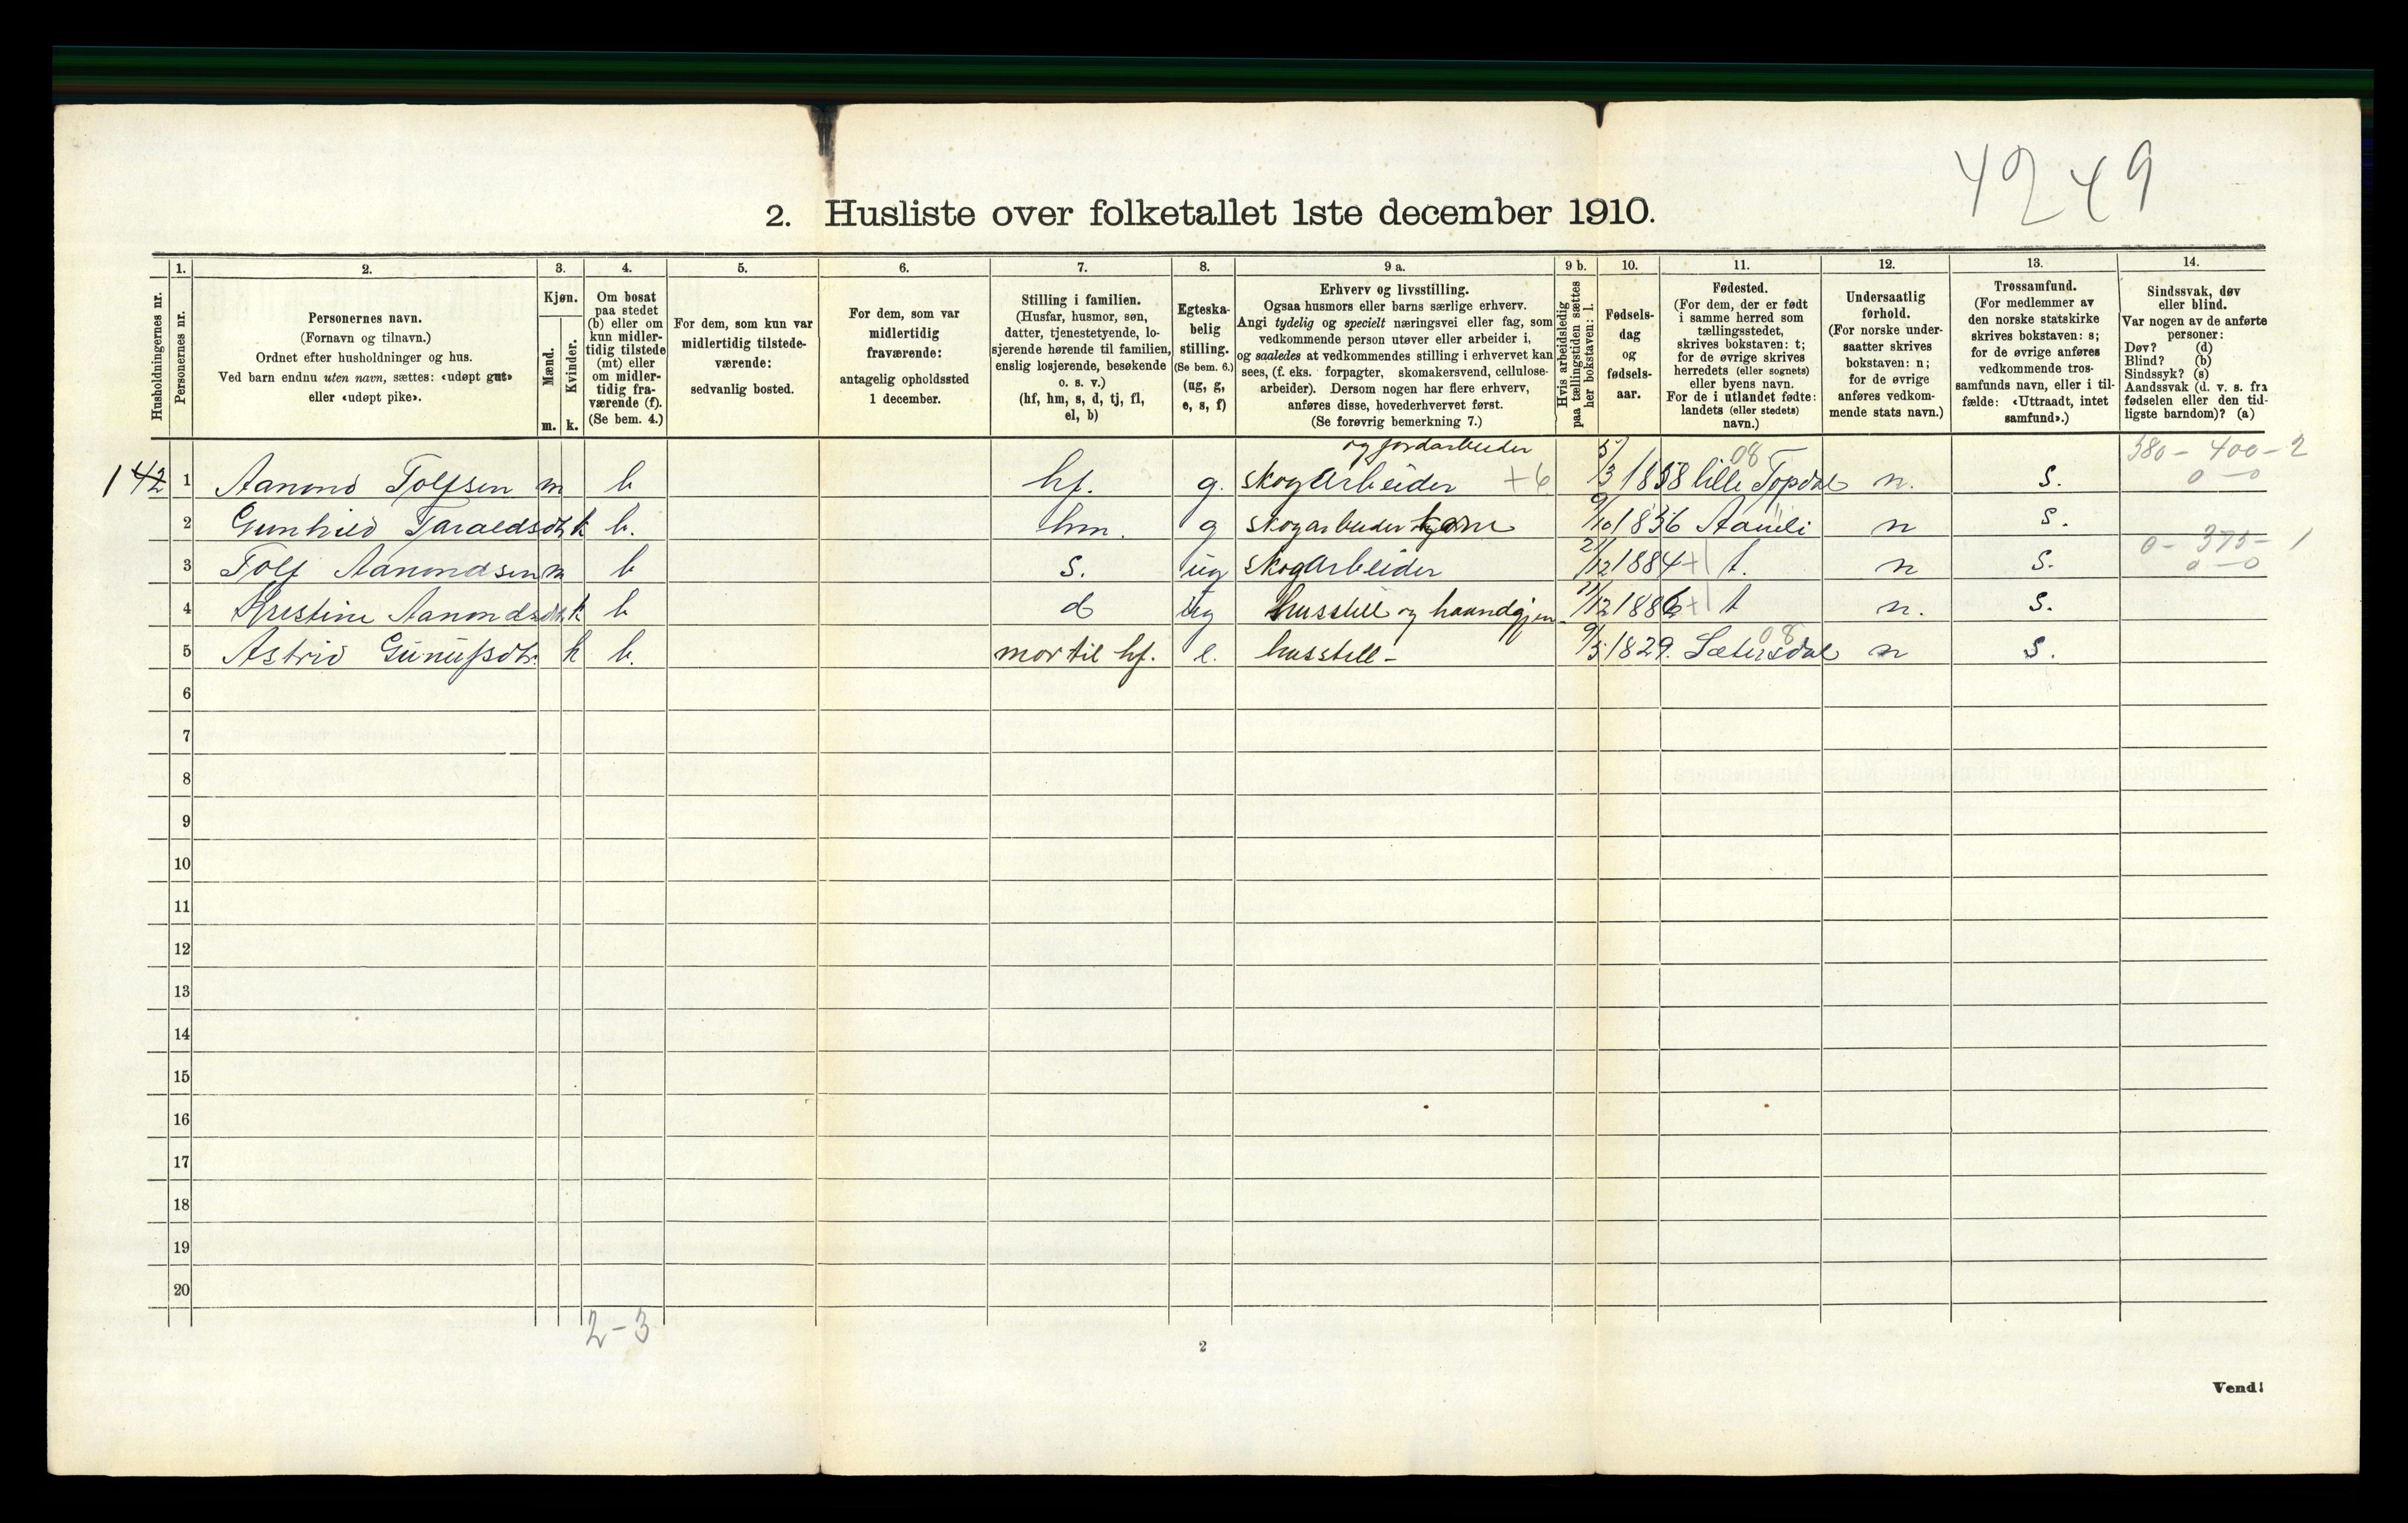 4249
2. Husliste over folketallet 1ste december 1910.
Husholdningernes nr.
1. Personernes nr.
2. Personernes navn.
(Fornavn og tilnavn.)
Ordnet efter husholdninger og hus.
Ved barn endnu uten navn, sættes: «udøpt gut»
eller «udøpt pike».
3. Kjøn.
Mænd. Kvinder.
m. k.
4. Om bosat
paa stedet
(b) eller om
kun midler-
tidig tilstede
(mt) eller
om midler-
tidig fra-
værende (f).
(Se bem. 4.)
5. For dem, som kun var
midlertidig tilstede-
værende:
sedvanlig bosted.
6. For dem, som var
midlertidig
fraværende:
antagelig opholdssted
1 december.
7. Stilling i familien.
(Husfar, husmor, søn,
datter, tjenestetyende, lo-
sjerende hørende til familien,
enslig losjerende, besøkende
o. s. v.)
(hf, hm, s, d, tj, fl,
el, b)
8. Egteska-
belig
stilling.
(Se bem. 6.)
(ug, g,
e, s, f)
9 a. Erhverv og livsstilling.
Ogsaa husmors eller barns særlige erhverv.
Angi tydelig og specielt næringsvei eller fag, som
vedkommende person utøver eller arbeider i,
og saaledes at vedkommendes stilling i erhvervet kan
sees, (f. eks. forpagter, skomakersvend, cellulose-
arbeider). Dersom nogen har flere erhverv,
anføres disse, hovederhvervet først.
(Se forøvrig bemerkning 7.)
9 b. Hvis arbeidsledig
paa tællingstiden sættes
her bokstaven: l.
10. Fødsels-
dag
og
fødsels-
aar.
11. Fødested.
(For dem, der er født
i samme herred som
tællingsstedet,
skrives bokstaven: t;
for de øvrige skrives
herredets (eller sognets)
eller byens navn.
For de i utlandet fødte:
landets (eller stedets)
navn.)
12. Undersaatlig
forhold.
(For norske under-
saatter skrives
bokstaven: n;
for de øvrige
anføres vedkom-
mende stats navn.)
13. Trossamfund.
(For medlemmer av
den norske statskirke
skrives bokstaven: s;
for de øvrige anføres
vedkommende tros-
samfunds navn, eller i til-
fælde: «Uttraadt, intet
samfund».)
14. Sindssvak, døv
eller blind.
Var nogen av de anførte
personer:
Døv? (d)
Blind? (b)
Sindssyk? (s)
Aandssvak (d. v. s. fra
fødselen eller den tid-
ligste barndom)? (a)
og jordarbeider 08 380 - 400 - 2
1 42 1 Aanond Tolfsen m b hf. g. skogarbeider +6 5/3 1858 lille Topdal n. s. 0 - 0
2 Gunhild Taraldsdtr k b. hm. g skogarbeider kone 9/10 1856 Aamli n s.
0 - 375 - 1
3 Tolf Aanondsen m b s. ug skogarbeider 21/12 1884 +1 t. n s. 0 - 0
4 Kristine Aanondsdtr k b d ug husstell og haandgjen- 21/12 1886 +1 t n. s.
08
5 Astrid Gunufsdtr. k b. mor til hf. e. husstell - 9/5 1829. Sætersdal n s.
6
7
8
9
10
11
12
13
14
15
16
17
18
19
20
2-3
2
Vend!